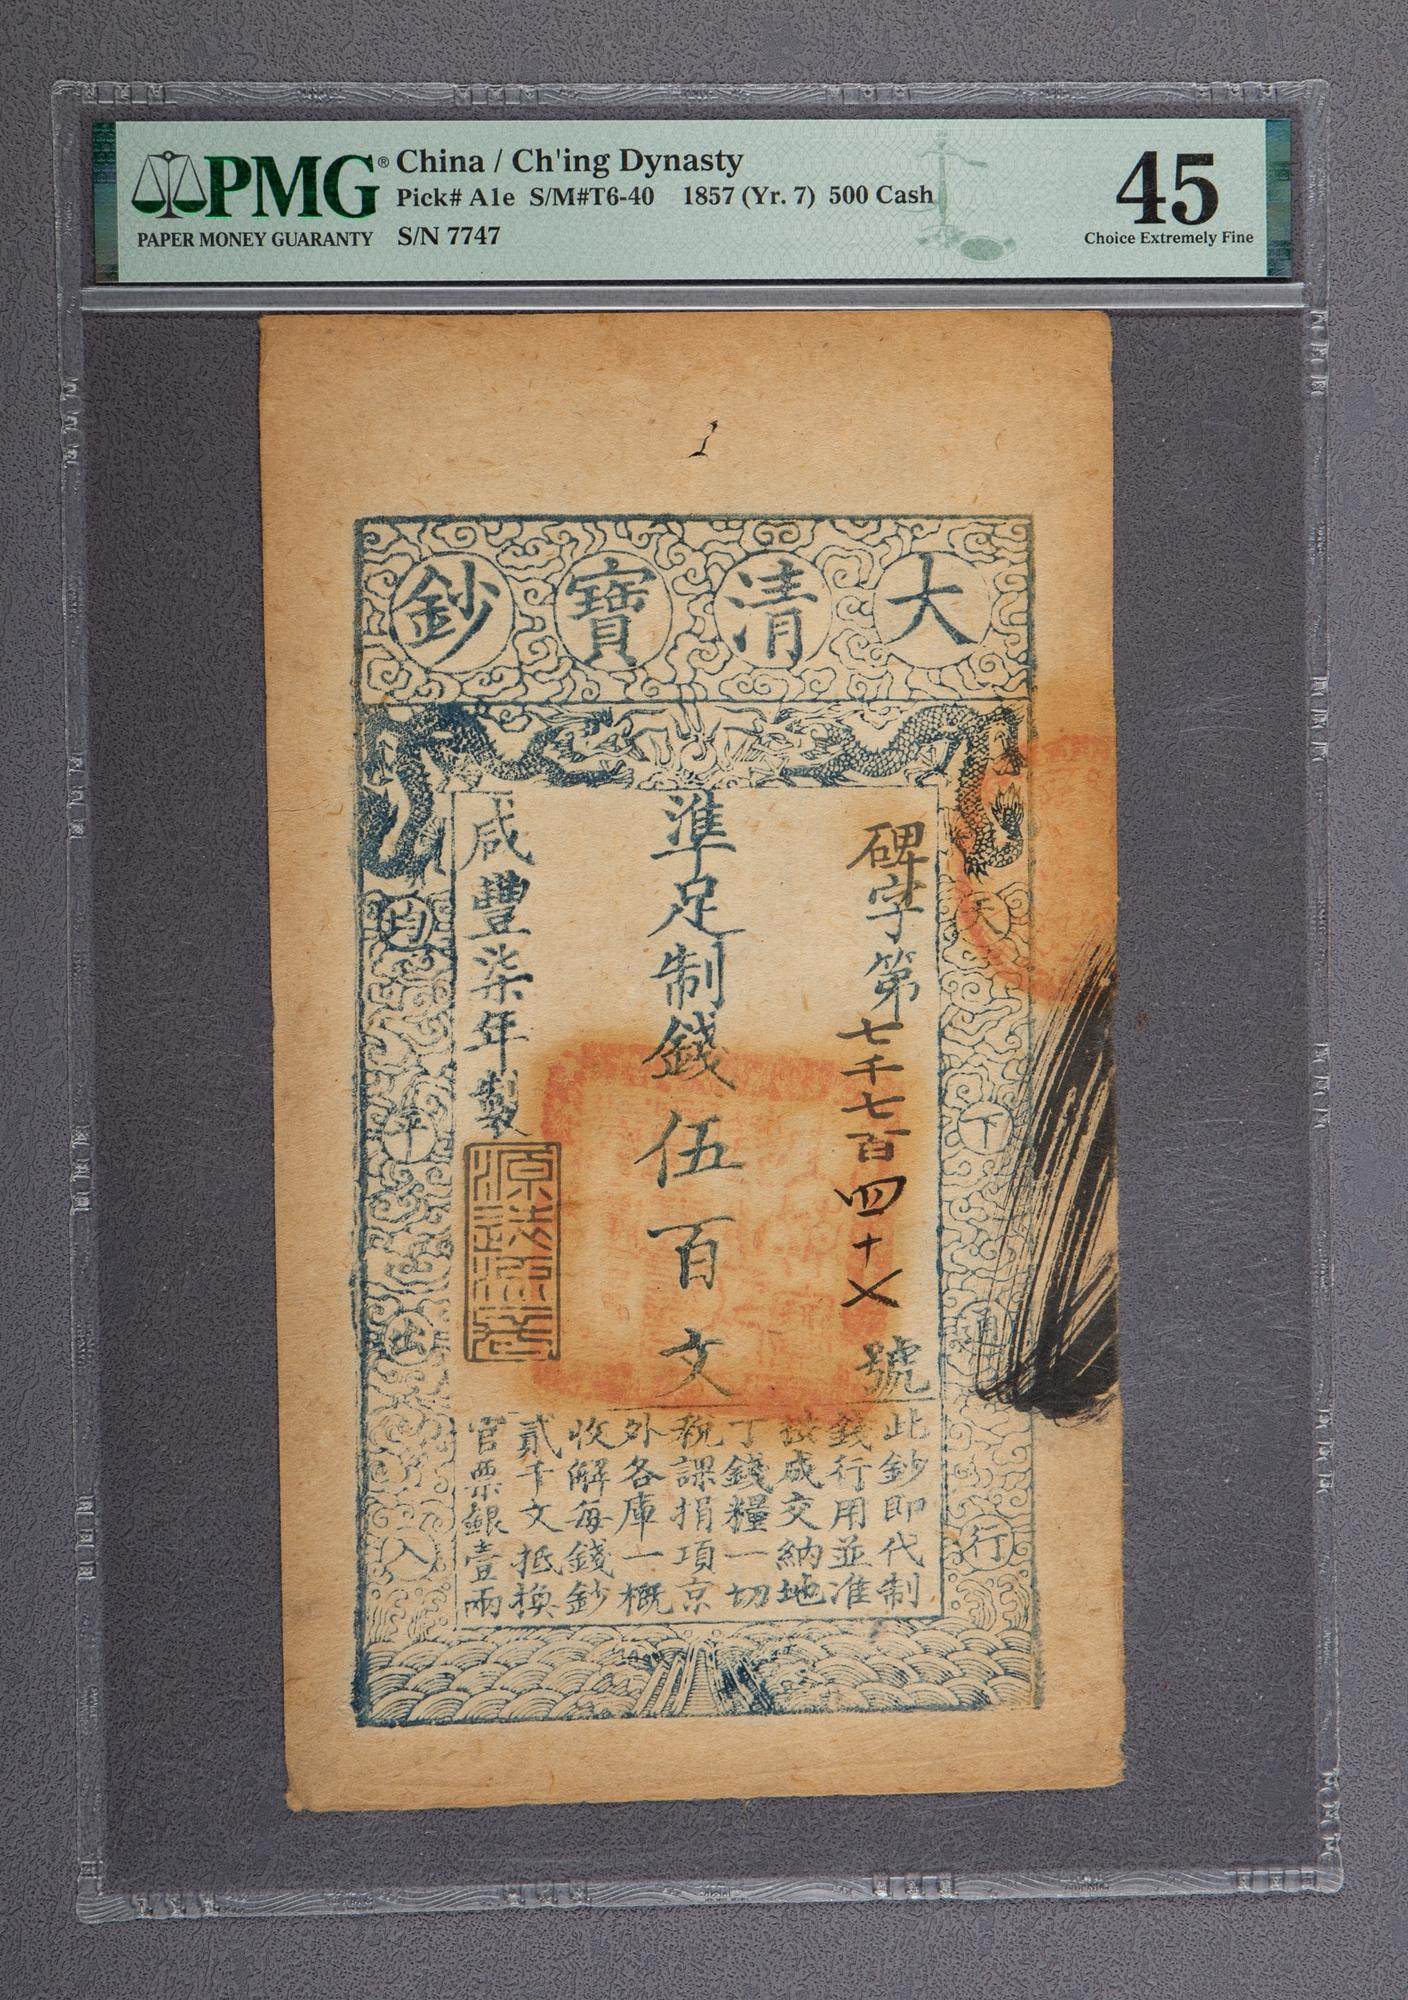 PMG® China / Ch'ing Dynasty
Pick# A1e S/M#T6-40 1857 (Yr. 7) 500 Cash
PAPER MONEY GUARANTY S/N 7747
45
Choice Extremely Fine
1
大清寶鈔
天下通行
碑字第七千七百四十七號
準足制錢伍百文
咸豐柒年製
均平出入
此鈔即代制
錢行用並准
按成交納地
丁錢糧一切
稅課捐項京
外各庫一概
收解每錢鈔
貳千文抵換
官票銀壹兩